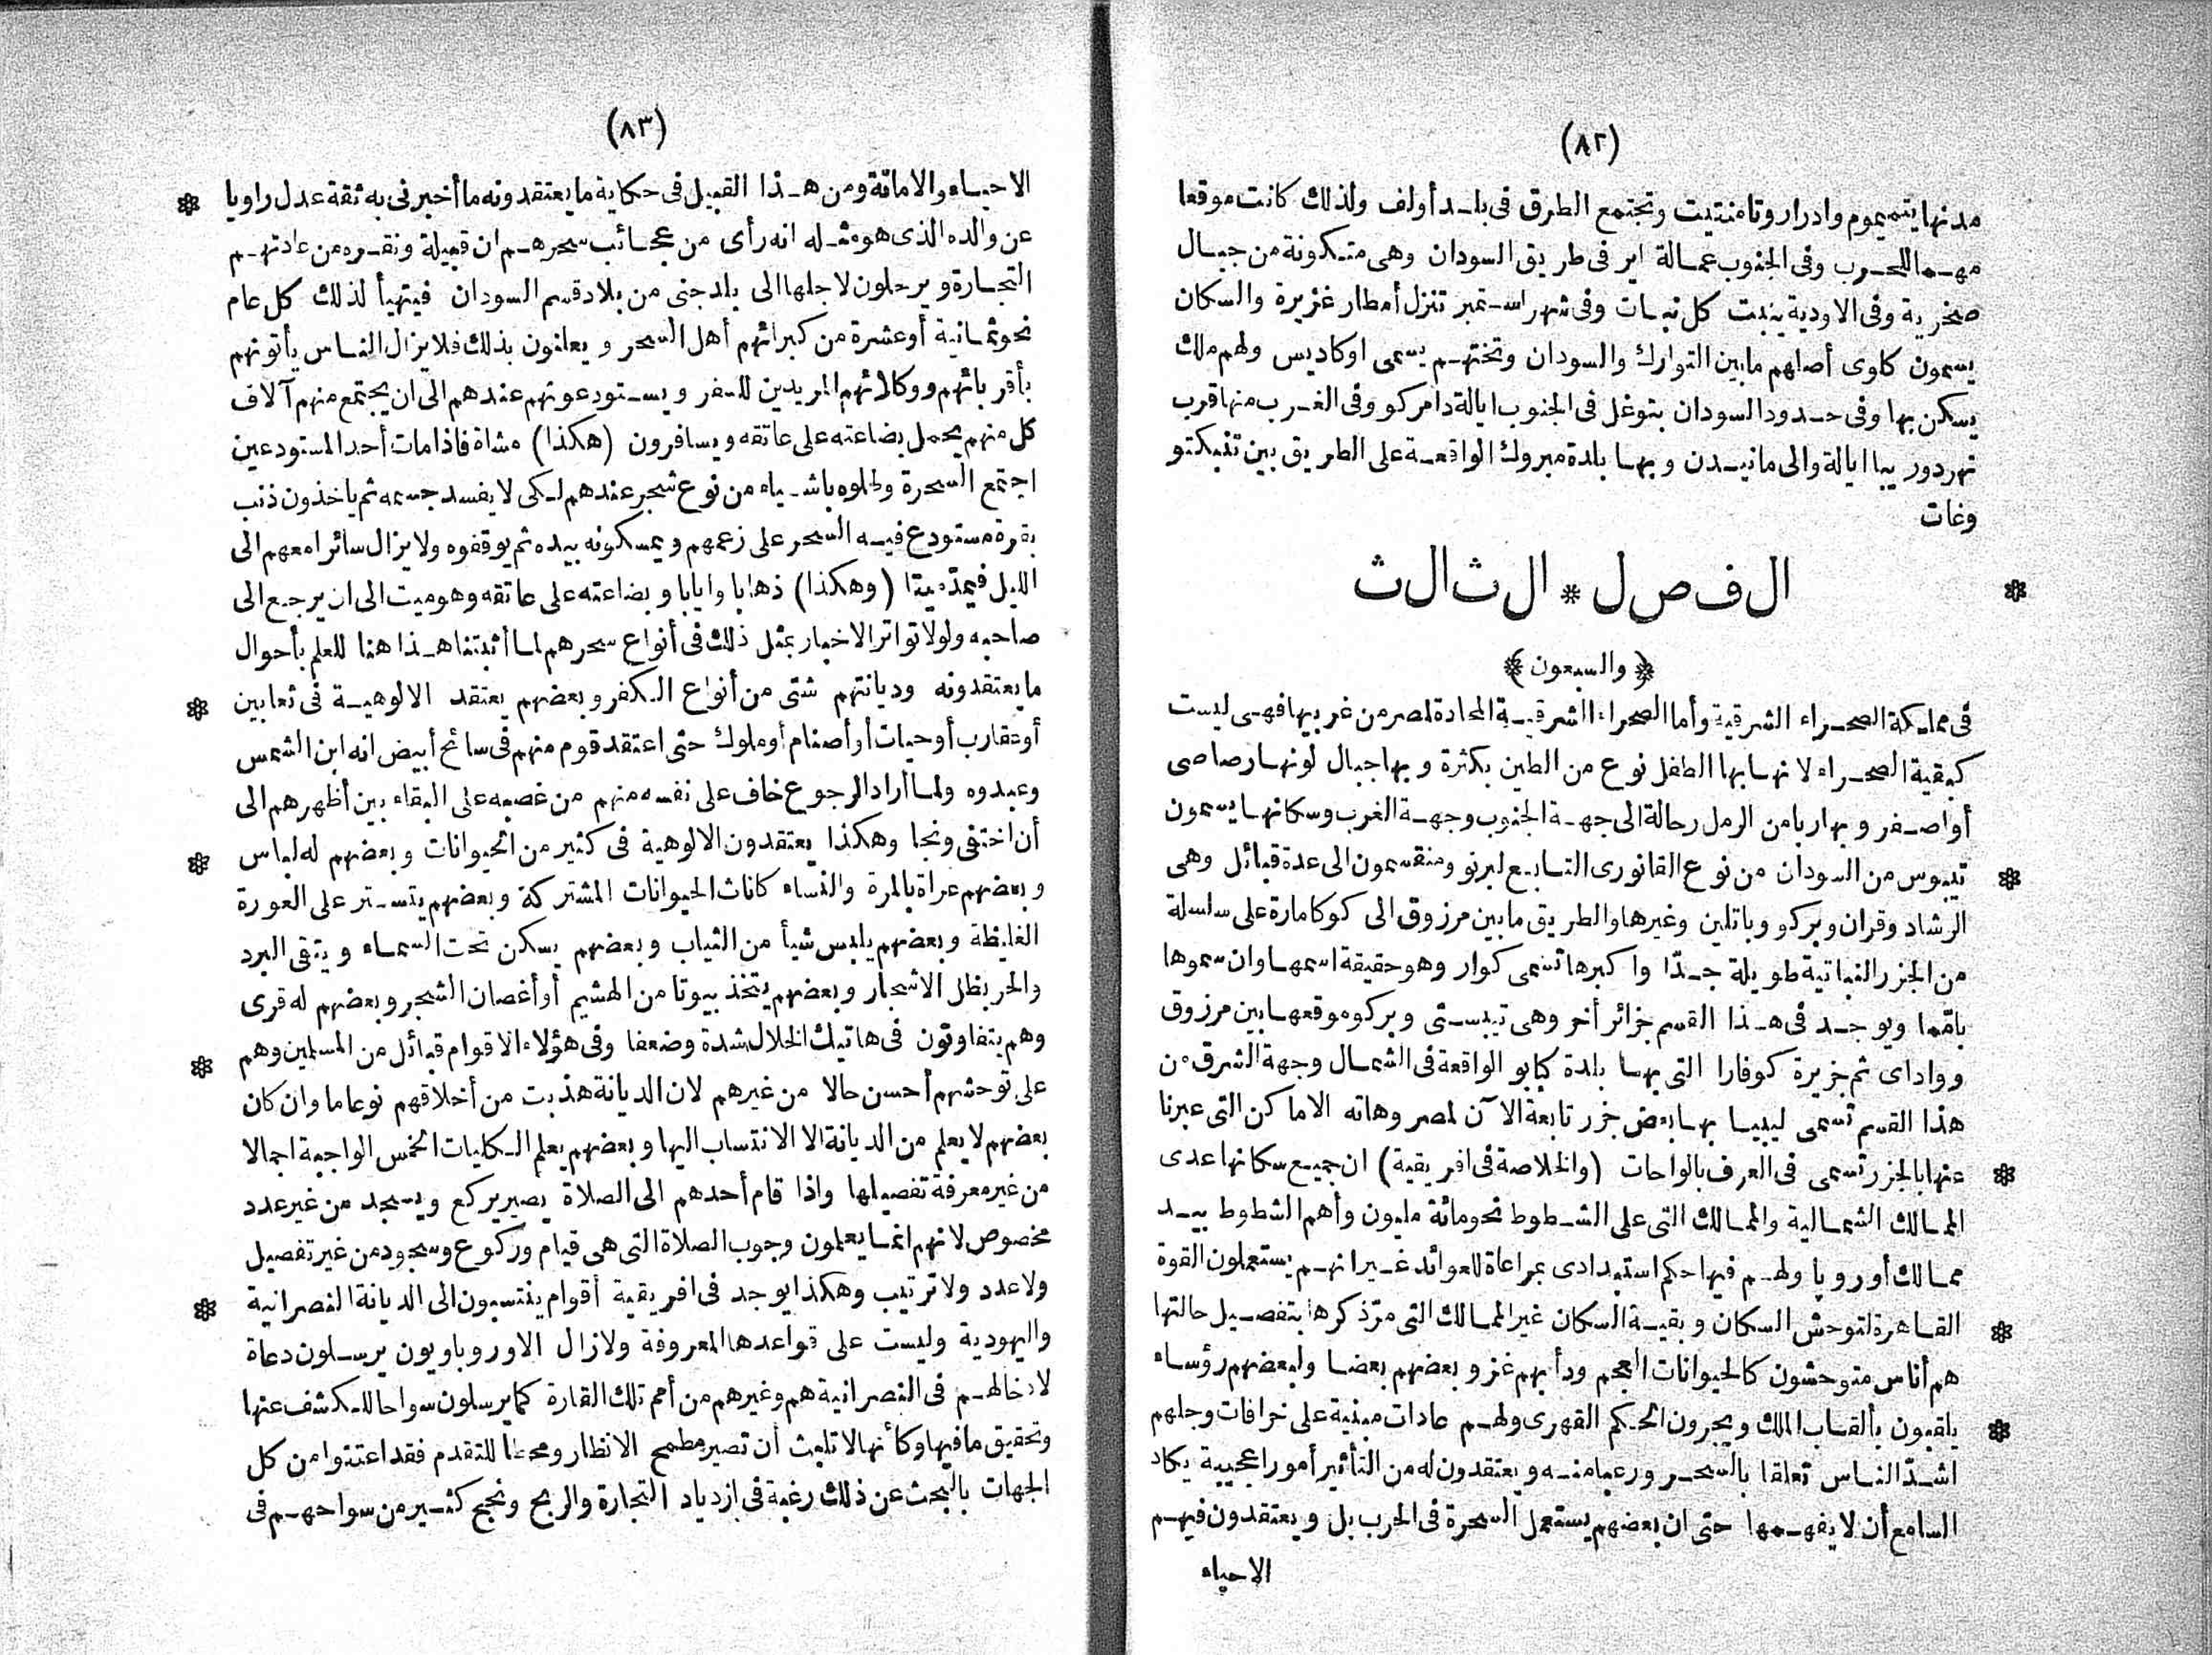 (٨٢)
مدنها يتميموم وادرار وتامنتيت وتجتمع الطرق فى بلد أولف ولذلك كانت موقعا
مهما للحرب وفى الجنوب عمالة اير فى طريق السودان وهى متكونة من جبال
صخرية وفى الاودية ينبت كل نبات وفى شهر استمبر تنزل أمطار غزيرة والسكان
يسمون كاوى أصلهم مابين التوارك والسودان وتختهم يسمى اوكاديس ولهم ملك
يسكن بها وفى حدود السودان بتوغل فى الجنوب ايالة دامركو وفى الغرب منها قرب
نهر دور يبا ايالة والى مانيدن وبها بلدة مبروك الواقعة على الطريق بين تنبكتو
وغات
* الفصل * الثالث
﴿ والسبعون ﴾
فى مملكة الصحراء الشرقية وأما الصحراء الشرقية المحادة لمصر من غربيها فهى ليست
كبقية الصحراء لانها بها الطفل نوع من الطين بكثرة وبها جبال لونها رصاصى
أواصفر وبها ربا من الرمل رحالة الى جهة الجنوب وجهة الغرب وسكانها يسمون
* تيبوس من السودان من نوع القانورى التابع لبرنو ومنقسمون الى عدة قبائل وهى
الرشاد وقران وبركو وباتلين وغيرها والطريق مابين مرزوق الى كوكا مارة على سلسلة
من الجزر النباتية طويلة جدّا واكبرها تسمى كوار وهو حقيقة اسمها وان سموها
بامّما ويوجد فى هذا القسم جزائر أخر وهى تيبستى وبركو موقعها بين مرزوق
وواداى ثم جزيرة كوفارا التى بها بلدة كبابو الواقعة فى الشمال وجهة الشرق من
هذا القسم تسمى ليبيا بها بعض جزر تابعة الآن لمصر وهاته الاماكن التى عبرنا
* عنها بالجزر تسمى فى العرف بالواحات (والخلاصة فى افريقية) ان جميع سكانها عدى
الممالك الشمالية والممالك التى على الشطوط نحو مائة مليون وأهم الشطوط بيد
ممالك أوروپا ولهم فيها حكم استبدادى بمراعاة للعوائد غير انهم يستعملون القوة
* القاهرة لتوحش السكان وبقية السكان غير الممالك التى مرّ ذكرها بتفصيل حالتها
هم أناس متوحشون كالحيوانات العجم ودأبهم غزو بعضهم بعضا ولبعضهم رؤساء
* يلقبون بألقاب الملك ويجرون الحكم القهرى ولهم عادات مبنية على خرافات وجلهم
اشدّ الناس تعلقا بالسحر ورعبا منه ويعتقدون له من التأثير أمورا عجيبة يكاد
السامع أن لا يفهمها حتى ان بعضهم يستعمل السحرة فى الحرب بل ويعتقدون فيهم
الاحياء
(٨٣)
* الاحياء والاماتة ومن هذا القبيل فى حكاية ما يعتقدونه ما أخبرنى به ثقة عدل راويا
عن والده الذى هو مثله انه رأى من عجائب سحرهم ان قبيلة ونقره من عادتهم
التجارة ويرحلون لاجلها الى بلد جنى من بلاد قسم السودان فيتهيأ لذلك كل عام
نحو ثمانية أو عشرة من كبرائهم أهل السحر ويعلنون بذلك فلا يزال الناس يأتونهم
بأقربائهم ووكلائهم المريدين للسفر ويستودعونهم عندهم الى ان يجتمع منهم آلاف
كل منهم يحمل بضاعته على عاتقه ويسافرون (هكذا) مشاة فاذا مات أحد المستودعين
اجتمع السحرة وطلوه باشياء من نوع شجر عندهم لكى لا يفسد جسمه ثم ياخذون ذنب
بقرة مستودع فيه السحر على زعمهم ويمسكونه بيده ثم يوقفوه ولا يزال سائرا معهم الى
الليل فيمدّ ميتا (وهكذا) ذهابا وايابا وبضاعته على عاتقه وهو ميت الى ان يرجع الى
صاحبه ولولا تواتر الاخبار بمثل ذلك فى أنواع سحرهم لما أثبتنا هذا هنا للعلم بأحوال
* ما يعتقدونه وديانتهم شتى من أنواع الكفر وبعضهم يعتقد الالوهية فى ثعابين
أوعقارب أوحيات أو أصنام أوملوك حتى اعتقد قوم منهم فى سائح أبيض انه ابن الشمس
وعبدوه ولما أراد الرجوع خاف على نفسه منهم من غصبه على البقاء بين أظهرهم الى
* أن اختفى ونجا وهكذا يعتقدون الالوهية فى كثير من الحيوانات وبعضهم له لباس
وبعضهم عراة بالمرة والنساء كاناث الحيوانات المشتركة وبعضهم يتستر على العورة
الغليظة وبعضهم يلبس شيأ من الثياب وبعضهم يسكن تحت السماء ويتقى البرد
والحر بظل الاشجار وبعضهم يتخذ بيوتا من الهشيم أو أغصان الشجر وبعضهم له قرى
* وهم يتفاوتون فى هاتيك الخلال شدة وضعفا وفى هؤلاء الاقوام قبائل من المسلمين وهم
على توحشهم أحسن حالا من غيرهم لان الديانة هذبت من أخلاقهم نوعاما وان كان
بعضهم لا يعلم من الديانة الا الانتساب اليها وبعضهم يعلم الكليات الخمس الواجبة اجمالا
من غير معرفة تفصيلها واذا قام أحدهم الى الصلاة يصير يركع ويسجد من غير عدد
مخصوص لانهم انما يعلمون وجوب الصلاة التى هى قيام وركوع وسجود من غير تفصيل
* ولا عدد ولا ترتيب وهكذا يوجد فى افريقية أقوام ينتسبون الى الديانة النصرانية
واليهودية وليست على قواعدها المعروفة ولازال الاوروباويون يرسلون دعاة
لادخالهم فى النصرانية هم وغيرهم من أمم تلك القارة كما يرسلون سواحا للكشف عنها
وتحقيق ما فيها وكأنها لا تلبث أن تصير مطمح الانظار ومحطا للتقدم فقد اعتنوا من كل
الجهات بالبحث عن ذلك رغبة فى ازدياد التجارة والربح ونجح كثير من سواحهم فى